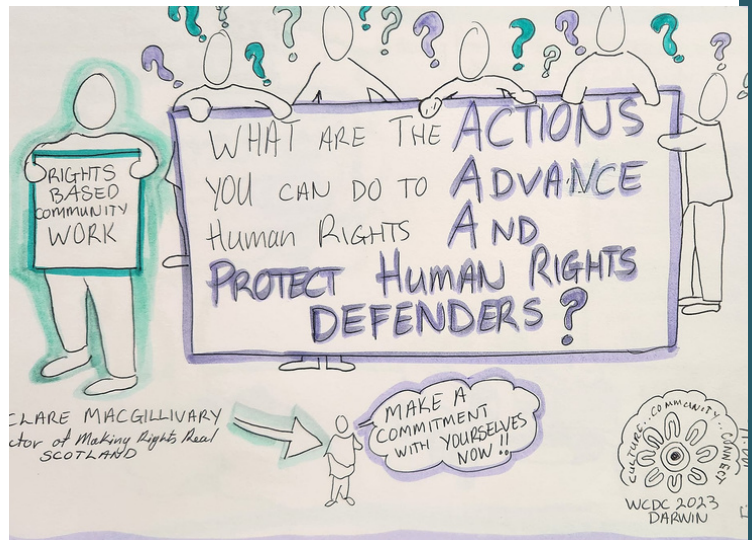 RIGHTS
BASED
COMMUNITY
WORK
WHAT ARE THE ACTIONS
YOU CAN DO TO ADVANCE
Human RIGHTS AND
PROTECT HUMAN RIGHTS
DEFENDERS?
CLARE MACGILLIVARY
ctor of Making Rights Real
SCOTLAND
MAKE A
COMMITMENT
WITH YOURSELVES
NOW!!
CULTURE..COMMUNITY..CONNECT
WCDC 2023
DARWIN